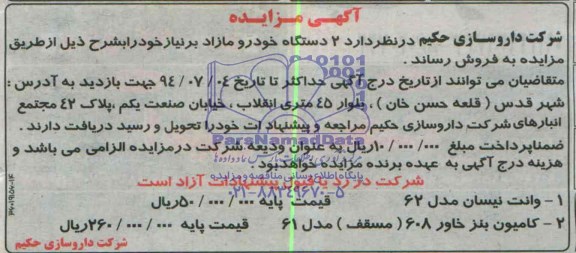 آگهی مزایده
شرکت داروسازی حکیم درنظردارد ۲ دستگاه خودرو مازاد برنیازخودرابشرح ذیل ازطریق
مزایده به فروش رساند .
متقاضیان می توانند ازتاریخ درج آگهی حداکثر تا تاریخ ۹۴/۰۷/۰۴ جهت بازدید به آدرس :
شهر قدس ( قلعه حسن خان ) ، بلوار ۴۵ متری انقلاب ، خیابان صنعت یکم ،پلاک ۴۲ مجتمع
انبارهای شرکت داروسازی حکیم مراجعه و پیشنهادات خودرا تحویل و رسید دریافت دارند .
ضمناپرداخت مبلغ ۱۰/۰۰۰/۰۰۰ریال به عنوان ودیعه شرکت درمزایده الزامی می باشد و
هزینه درج آگهی به عهده برنده مزایده خواهدبود .
شرکت در رد یا قبول پیشنهادات آزاد است
۱ - وانت نیسان مدل ۶۲ قیمت پایه ۵۰/۰۰۰/۰۰۰ریال
۲ - کامیون بنز خاور ۶۰۸ ( مسقف ) مدل ۶۱ قیمت پایه ۲۶۰/۰۰۰/۰۰۰ریال
شرکت داروسازی حکیم
ParsNamadData
پایگاه اطلاع رسانی مناقصه و مزایده
۰۲۱-۸۸۳۴۹۶۷۰-۵